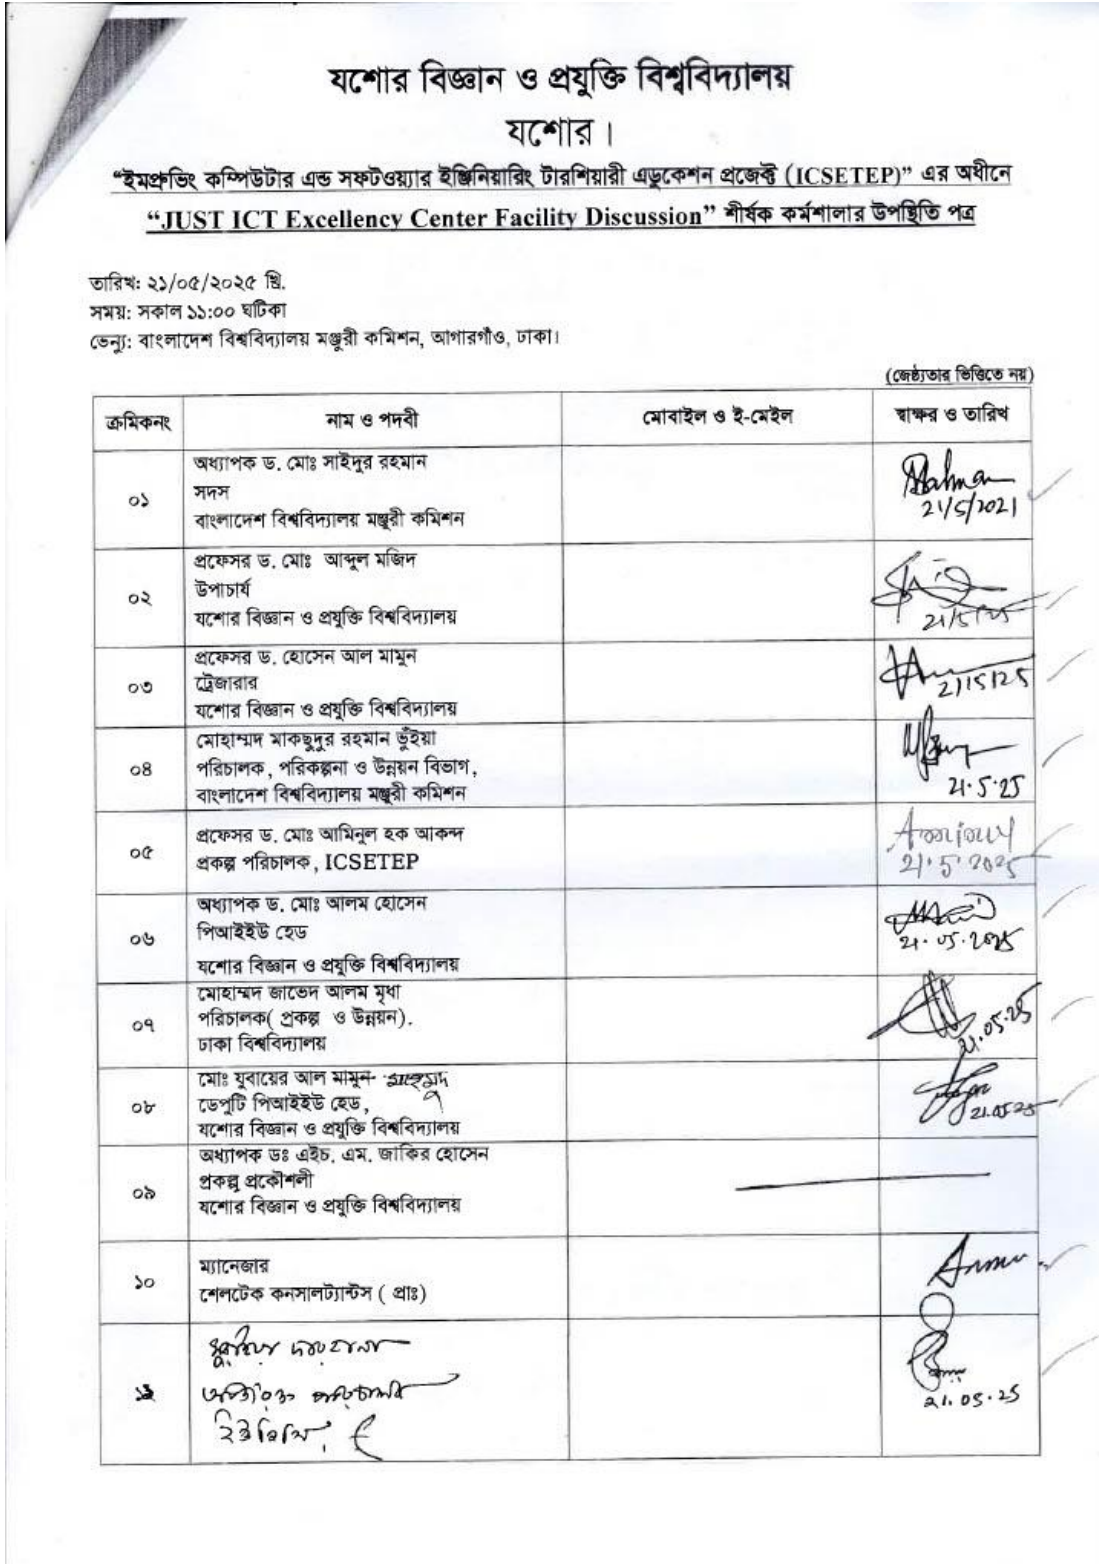 যশোর বিজ্ঞান ও প্রযুক্তি বিশ্ববিদ্যালয়
যশোর।
“ইমপ্রুভিং কম্পিউটার এন্ড সফটওয়্যার ইঞ্জিনিয়ারিং টারশিয়ারী এডুকেশন প্রজেক্ট (ICSETEP)” এর অধীনে
“JUST ICT Excellency Center Facility Discussion” শীর্ষক কর্মশালার উপস্থিতি পত্র
তারিখ: ২১/০৫/২০২৫ খ্রি.
সময়: সকাল ১১:০০ ঘটিকা
ভেন্যু: বাংলাদেশ বিশ্ববিদ্যালয় মঞ্জুরী কমিশন, আগারগাঁও, ঢাকা।
(জেষ্ঠ্যতার ভিত্তিতে নয়)
ক্রমিকনং নাম ও পদবী মোবাইল ও ই-মেইল স্বাক্ষর ও তারিখ
অধ্যাপক ড. মোঃ সাইদুর রহমান
০১ সদস
বাংলাদেশ বিশ্ববিদ্যালয় মঞ্জুরী কমিশন
Rahman
21/5/2021
প্রফেসর ড. মোঃ আব্দুল মজিদ
০২ উপাচার্য
যশোর বিজ্ঞান ও প্রযুক্তি বিশ্ববিদ্যালয়
21/5/25
প্রফেসর ড. হোসেন আল মামুন
০৩ ট্রেজারার
যশোর বিজ্ঞান ও প্রযুক্তি বিশ্ববিদ্যালয়
21/5/25
মোহাম্মদ মাকছুদুর রহমান ভুঁইয়া
০৪ পরিচালক, পরিকল্পনা ও উন্নয়ন বিভাগ,
বাংলাদেশ বিশ্ববিদ্যালয় মঞ্জুরী কমিশন
21.5.25
প্রফেসর ড. মোঃ আমিনুল হক আকন্দ
০৫ প্রকল্প পরিচালক, ICSETEP
21.5.2025
অধ্যাপক ড. মোঃ আলম হোসেন
০৬ পিআইইউ হেড
যশোর বিজ্ঞান ও প্রযুক্তি বিশ্ববিদ্যালয়
21.05.2025
মোহাম্মদ জাভেদ আলম মৃধা
০৭ পরিচালক( প্রকল্প ও উন্নয়ন).
ঢাকা বিশ্ববিদ্যালয়
21.05.25
মোঃ যুবায়ের আল মামুন মাহমুদ
০৮ ডেপুটি পিআইইউ হেড,
যশোর বিজ্ঞান ও প্রযুক্তি বিশ্ববিদ্যালয়
21.05.25
অধ্যাপক ডঃ এইচ. এম. জাকির হোসেন
০৯ প্রকল্প প্রকৌশলী
যশোর বিজ্ঞান ও প্রযুক্তি বিশ্ববিদ্যালয়
১০ ম্যানেজার
শেলটেক কনসালট্যান্টস ( প্রাঃ)
সুরাইয়া ফারহানা
অতিরিক্ত পরিচালক
ইউজিসি
21.05.25